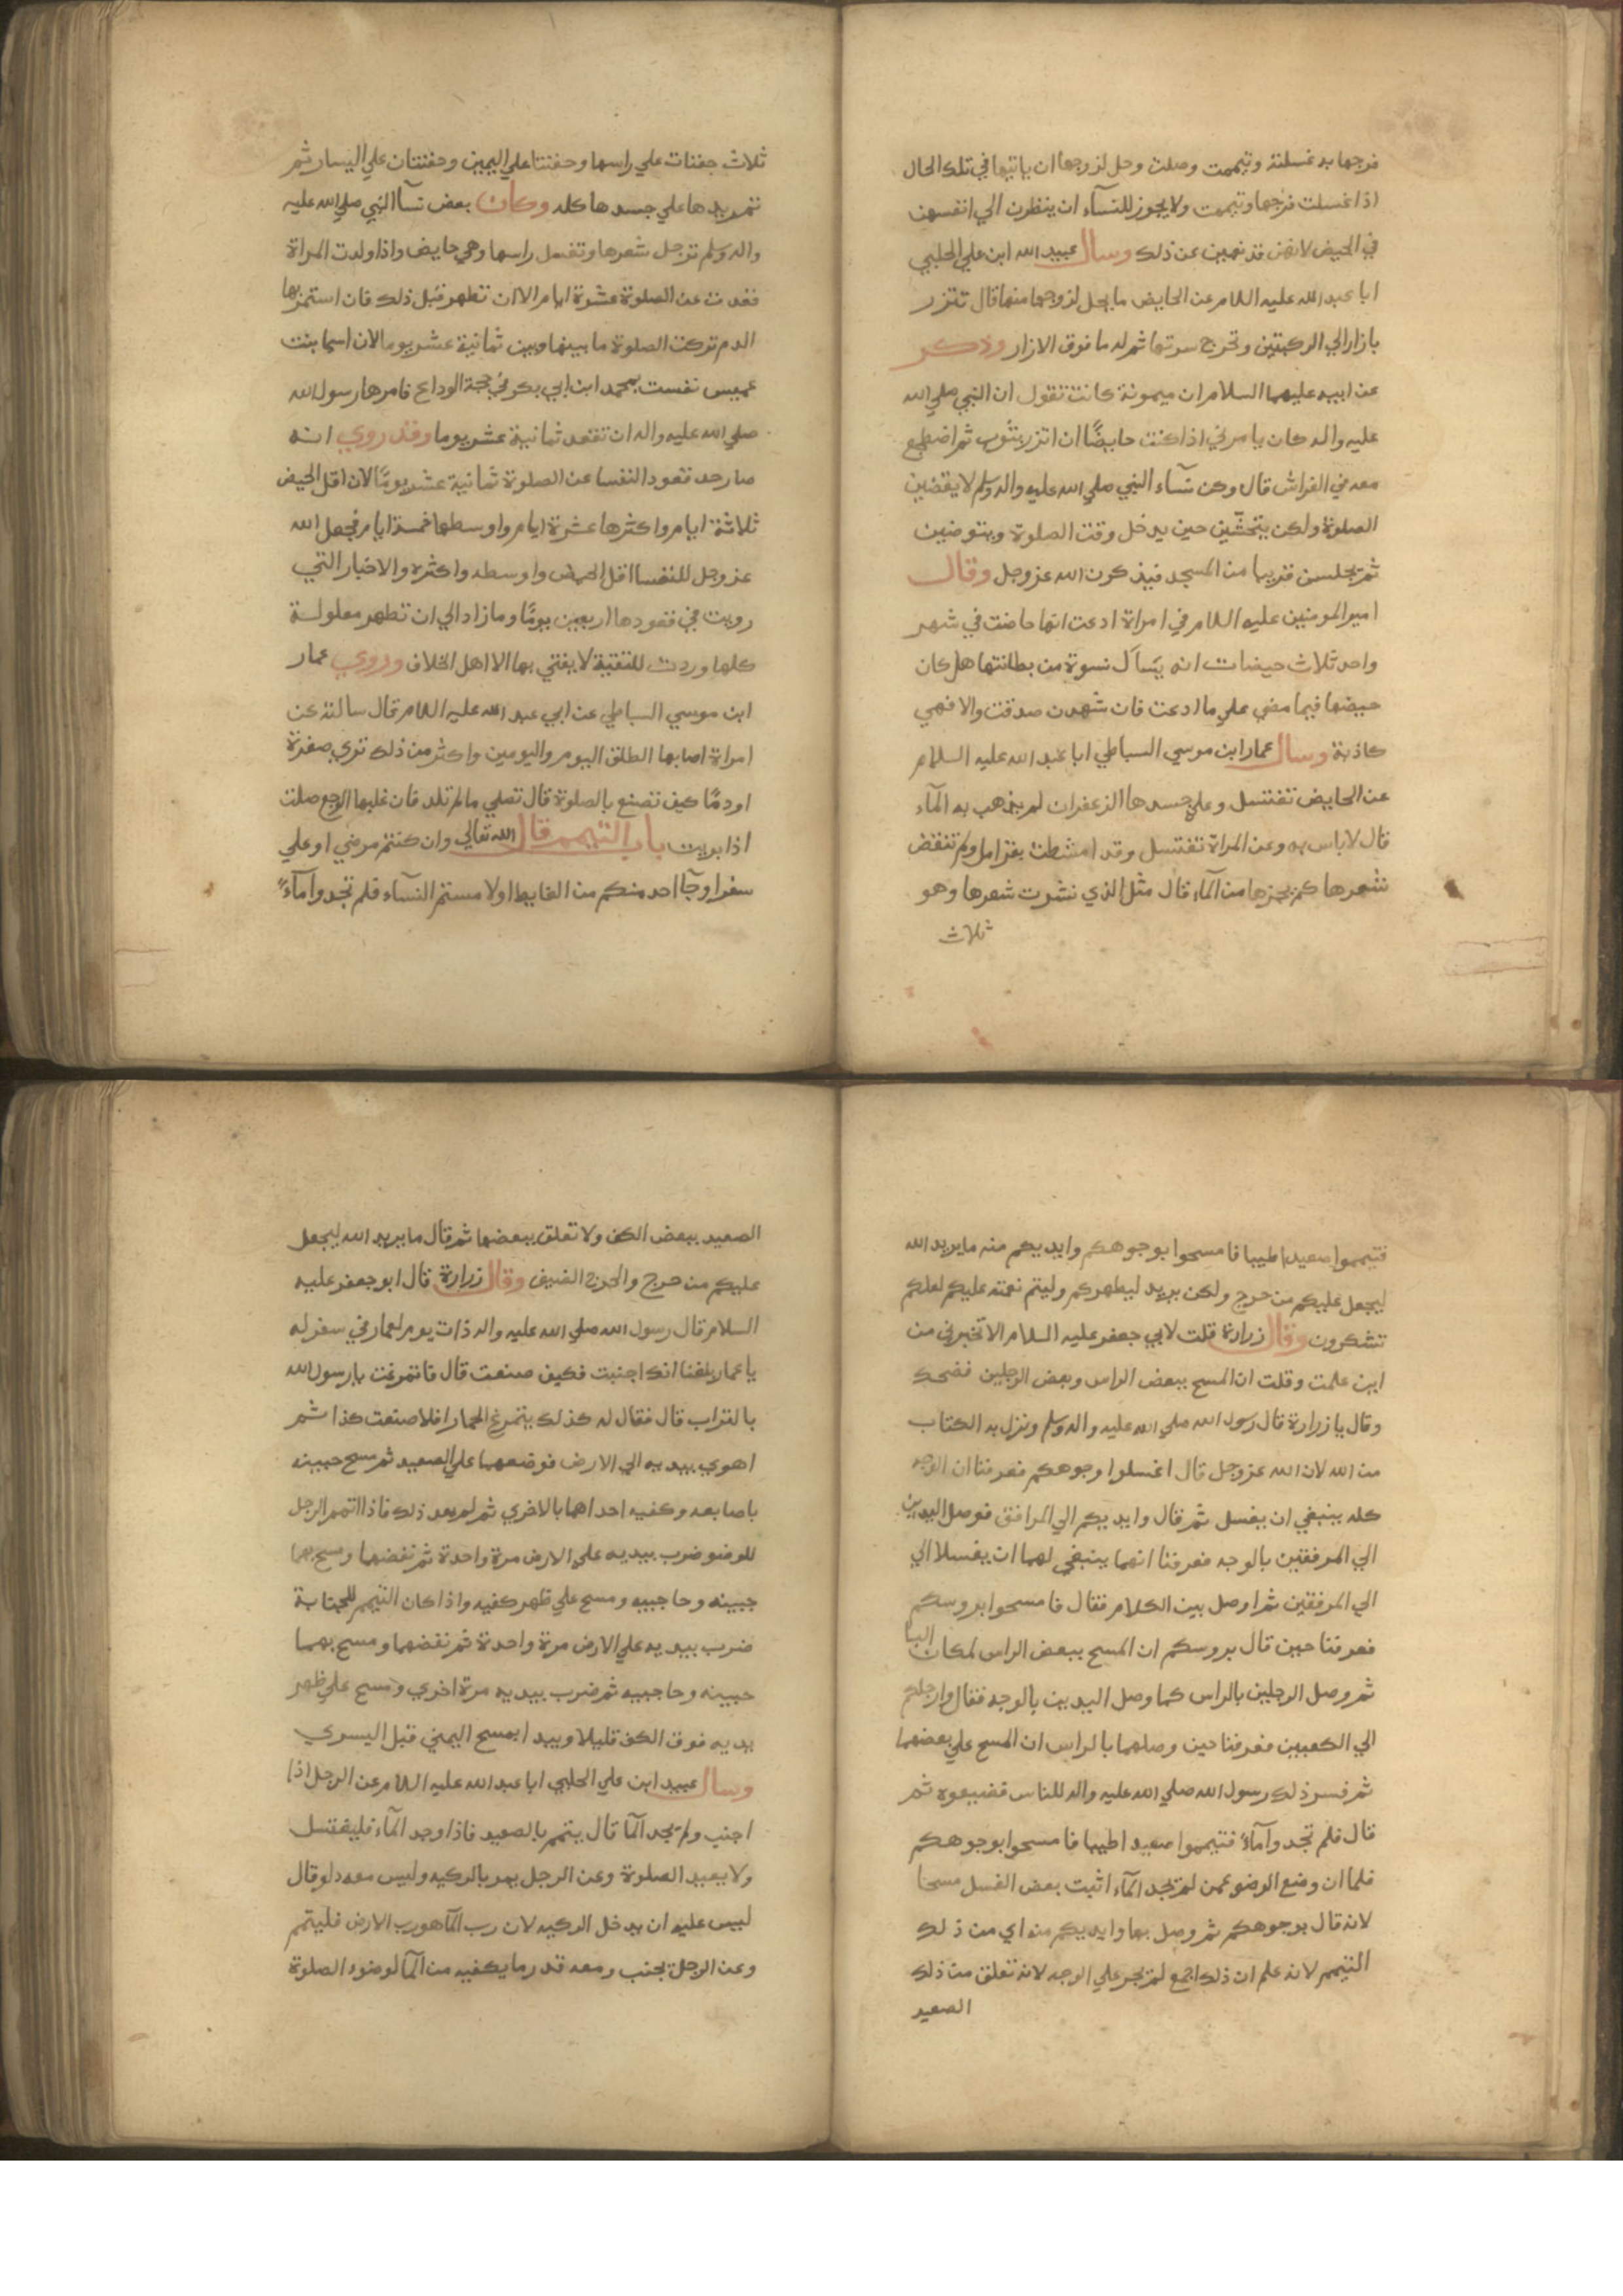 فرجها به غسلته وتيممت وصلت وحل لزوجها ان ياتيها في تلك الحال
اذا غسلت فرجها وتيممت ولا يجوز للنسآء ان ينظرن الي انفسهن
في الحيض لانهن قد نهين عن ذلك وسال عبيد الله ابن علي الحلبي
ابا عبد الله عليه السلام عن الحايض ما يحل لزوجها منها قال تتزر
بازار الي الركبتين وتخرج سرتها ثم له ما فوق الازار وذكر
عن ابيه عليهما السلام ان ميمونة كانت تقول ان النبي صلي الله
عليه واله كان يامرني اذا كنت حايضًا ان اتزر بثوب ثم اضطجع
معه في الفراش قال وكن نسآء النبي صلي الله عليه واله وسلم لا يقضين
الصلوة ولكن يتحشّين حين يدخل وقت الصلوة ويتوضين
ثم يجلسن قريبا من المسجد فيذكرن الله عز وجل وقال
امير المومنين عليه السلام في امراة ادعت انها حاضت في شهر
واحد ثلاث حيضات انه يسآل نسوة من بطانتها هل كان
حيضها فيما مضي علي ما ادعت فان شهدن صدقت والا فهي
كاذبة وسال عمار ابن موسي السباطي ابا عبد الله عليه السلام
عن الحايض تغتسل وعلي جسدها الزعفران لم يذهب به المآء
قال لا باس به وعن المراة تغتسل وقد امشطت بقرامل ولم تنقض
شعرها كم يجزها من المآء قال مثل الذي نشرت شعرها وهو
ثلاث
ثلاث حفنات علي راسها وحفنتا علي اليمين وحفنتان علي اليسار ثم
تمر يدها علي جسدها كله وكان بعض نسآ النبي صلي الله عليه
واله وسلم ترجل شعرها وتغسل راسها وهي حايض واذا ولدت المراة
قعدت عن الصلوة عشرة ايام الا ان تطهر قبل ذلك فان استمر بها
الدم تركت الصلوة ما بينها وبين ثمانية عشر يوما لان اسما بنت
عميس نفست بمحمد ابن ابي بكر في حجة الوداع فامرها رسول الله
صلي الله عليه واله ان تقعد ثمانية عشر يوما وقد روي انه
صار حد قعود النفسا عن الصلوة ثمانية عشر يومًا لان اقل الحيض
ثلاثة ايام واكثرها عشرة ايام واوسطها خمسة ايام فجعل الله
عز وجل للنفسا اقل الحيض واوسطه واكثره والاخبار التي
رويت في قعودها اربعين يومًا وما زاد الي ان تطهر معلولة
كلها وردت للتقية لا يفتي بها الا اهل الخلاف وروي عمار
ابن موسي السباطي عن ابي عبد الله عليه السلام قال سالته عن
امراة اصابها الطلق اليوم واليومين واكثر من ذلك تري صفرة
او دمًا كيف تصنع بالصلوة قال تصلي ما لم تلد فان غلبها الوجع صلت
اذا بريت باب التيمم قال الله تعالي وان كنتم مرضي او علي
سفر او جآ احد منكم من الغايط او لامستم النسآء فلم تجدوا مآءً
فتيمموا صعيدا طيبا فامسحوا بوجوهكم وايديكم منه ما يريد الله
ليجعل عليكم من حرج ولكن يريد ليطهركم وليتم نعمته عليكم لعلكم
تشكرون وقال زرارة قلت لابي جعفر عليه السلام الا تخبرني من
اين علمت وقلت ان المسح ببعض الراس وبعض الرجلين فضحك
وقال يا زرارة قال رسول الله صلي الله عليه واله وسلم ونزل به الكتاب
من الله لان الله عز وجل قال اغسلوا وجوهكم فعرفنا ان الوجه
كله ينبغي ان يغسل ثم قال وايديكم الي المرافق فوصل اليدين
الي المرفقين بالوجه فعرفنا انهما ينبغي لهما ان يغسلا الي
الي المرفقين ثم اوصل بين الكلام فقال فامسحوا بروسكم
فعرفنا حين قال بروسكم ان المسح ببعض الراس لمكان البا
ثم وصل الرجلين بالراس كما وصل اليدين بالوجه فقال وارجلكم
الي الكعبين فعرفنا حين وصلهما بالراس ان المسح علي بعضهما
ثم فسر ذلك رسول الله صلي الله عليه واله للناس فضيعوه ثم
قال فلم تجدوا مآءً فتيمموا صعيدا طيبا فامسحوا بوجوهكم
فلما ان وضع الوضو عمن لم يجد المآء اثبت بعض الغسل مسحا
لانه قال بوجوهكم ثم وصل بها وايديكم منه اي من ذلك
التيمم لانه علم ان ذلك اجمع لم يجر علي الوجه لانه تعلق من ذلك
الصعيد
الصعيد ببعض الكف ولا تعلق ببعضها ثم قال ما يريد الله ليجعل
عليكم من حرج والحرج الضيق وقال زرارة قال ابو جعفر عليه
السلام قال رسول الله صلي الله عليه واله ذات يوم لعمار في سفر له
يا عمار بلغنا انك اجنبت فكيف صنعت قال فاتمرغت يا رسول الله
بالتراب قال فقال له كذلك يتمرغ الحمار افلا صنعت كذا ثم
اهوي بيديه الي الارض فوضعهما علي الصعيد ثم مسح جبينه
باصابعه وكفيه احداهما بالاخري ثم لم يعد ذلك فاذا اتمم الرجل
للوضو ضرب بيديه علي الارض مرة واحدة ثم نفضهما ومسح بهما
جبينه وحاجبيه ومسح علي ظهر كفيه واذا كان التيمم للجنابة
ضرب بيديه علي الارض مرة واحدة ثم نفضهما ومسح بهما
جبينه وحاجبيه ثم ضرب بيديه مرة اخري ومسح علي ظهر
يديه فوق الكف قليلا ويبدا بمسح اليمني قبل اليسري
وسال عبيد ابن علي الحلبي ابا عبد الله عليه السلام عن الرجل اذا
اجنب ولم يجد المآ قال يتمم بالصعيد فاذا وجد المآء فليغتسل
ولا يعيد الصلوة وعن الرجل يمر بالركيه وليس معه دلو قال
ليس عليه ان يدخل الركيه لان رب المآ هو رب الارض فليتمم
وعن الرجل يجنب ومعه قدر ما يكفيه من المآ لوضوء الصلوة